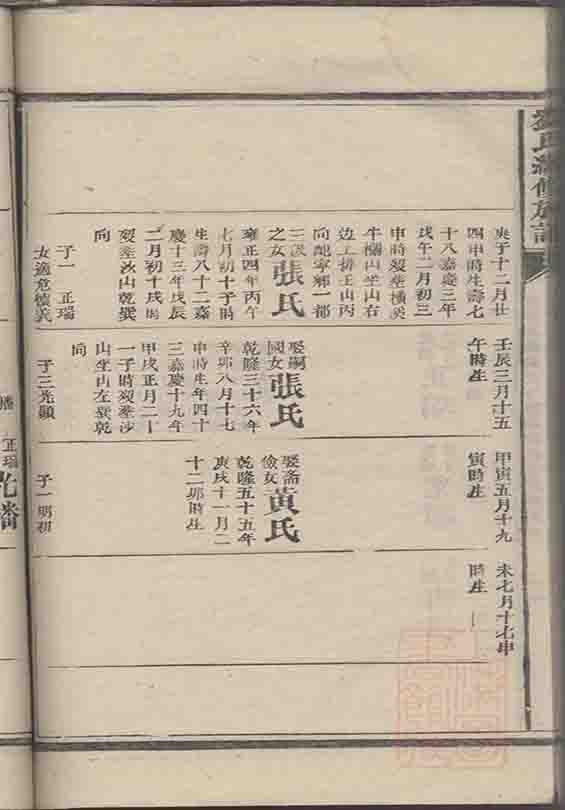 氏續修族譜
庚子十二月廿
四申時生壽七
十八嘉慶三年
戊午二月初三
申時歿塟橫
牛欄凹坐山右
邊工排壬山丙
向配寧鄉一都
三派
之女張氏
雍正四年丙午
七月初十子時
生壽八十二嘉
慶十三年戊辰
二月初十戌時
歿塟汝山乾巽
向
子一 正瑞
女適危懷義
壬辰三月十五
午時生
娶嗣
國女張氏
乾隆三十六年
辛卯八月十七
申時生年四十
三嘉慶十九年
甲戌正月二十
一子時歿塟沙
山坐山左巽乾
向
子三光顯
甲寅五月十九
寅時生
娶斎
儉女黃氏
乾隆五十五年
庚戌十一月二
十二卯時生
子一明初
未七月十七申
時生
播
正瑞
光播